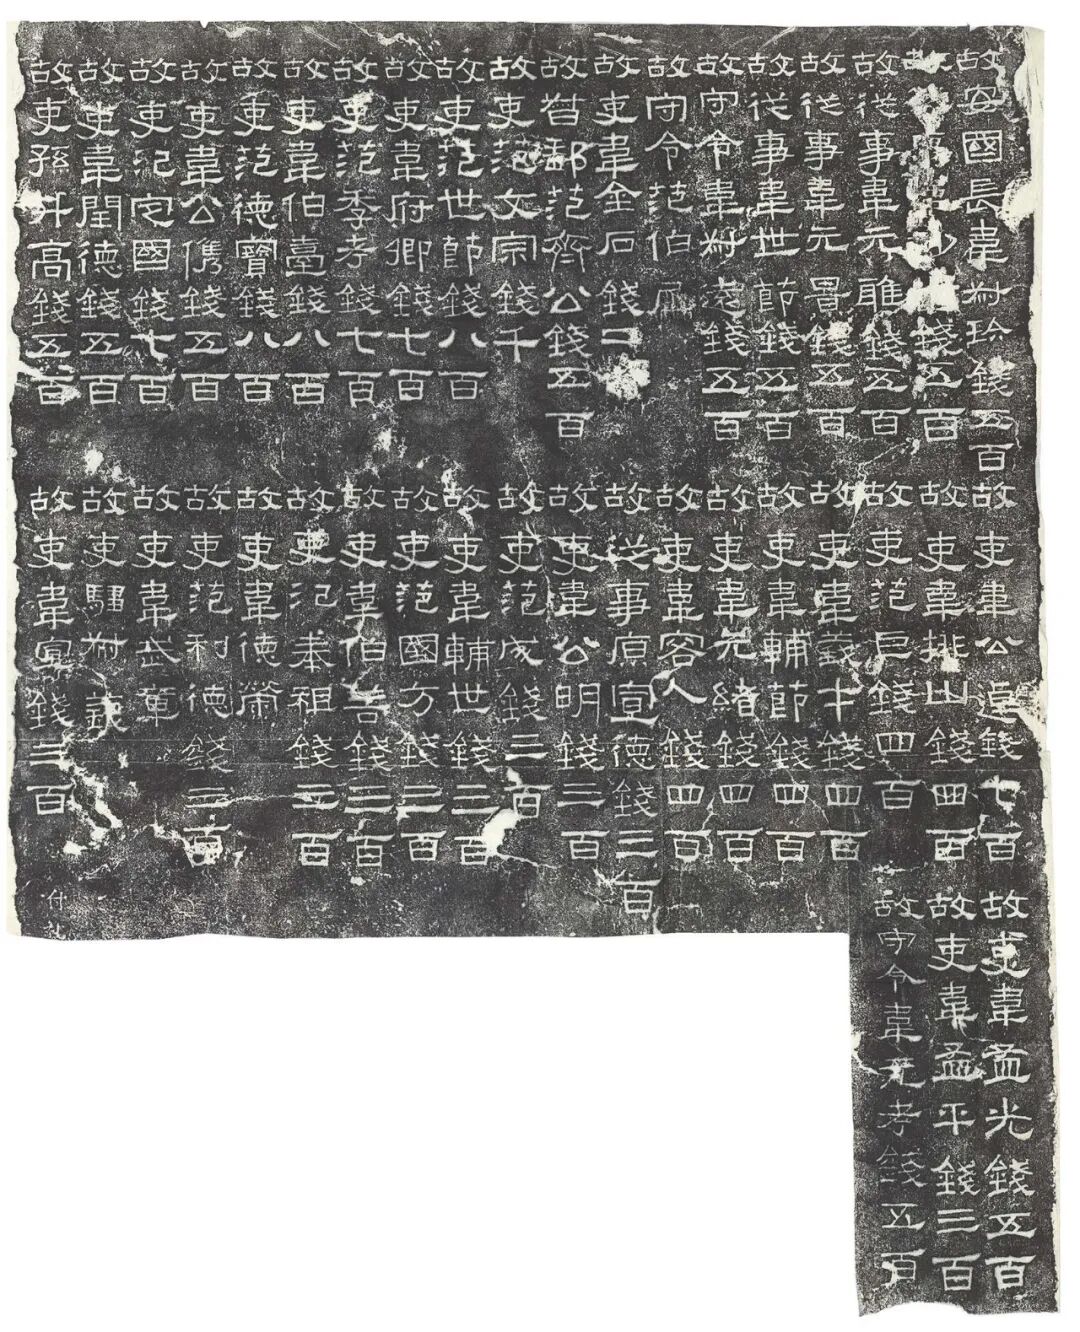 故安國長韋叔珍錢五百
故從事韋少主錢五百
故從事韋元雅錢五百
故從事韋元景錢五百
故從事韋世節錢五百
故守令韋叔遠錢五百
故守令范伯犀
故吏韋金石錢二
故督郵范齊公錢五百
故吏范文宗錢千
故吏范世節錢八百
故吏韋府卿錢七百
故吏范季考錢七百
故吏韋伯臺錢八百
故吏范德寶錢八百
故吏韋公儁錢五百
故吏氾定國錢七百
故吏韋閏德錢五百
故吏孫升高錢五百
故吏韋公逴錢七百
故吏韋排山錢四百
故吏范巨錢四百
故吏韋義才錢四百
故吏韋輔節錢四百
故吏韋元緒錢四百
故吏韋容人錢四百
故從事原宣德錢三百
故吏韋公明錢三百
故吏范成錢三百
故吏韋輔世錢三百
故吏范國方錢三百
故吏韋伯善錢三百
故吏氾奉祖錢三百
故吏韋德榮
故吏范利德錢三百
故吏韋武章
故吏騶叔義
故吏韋宣錢三百
故吏韋孟光錢五百
故吏韋孟平錢三百
故守令韋元考錢五百